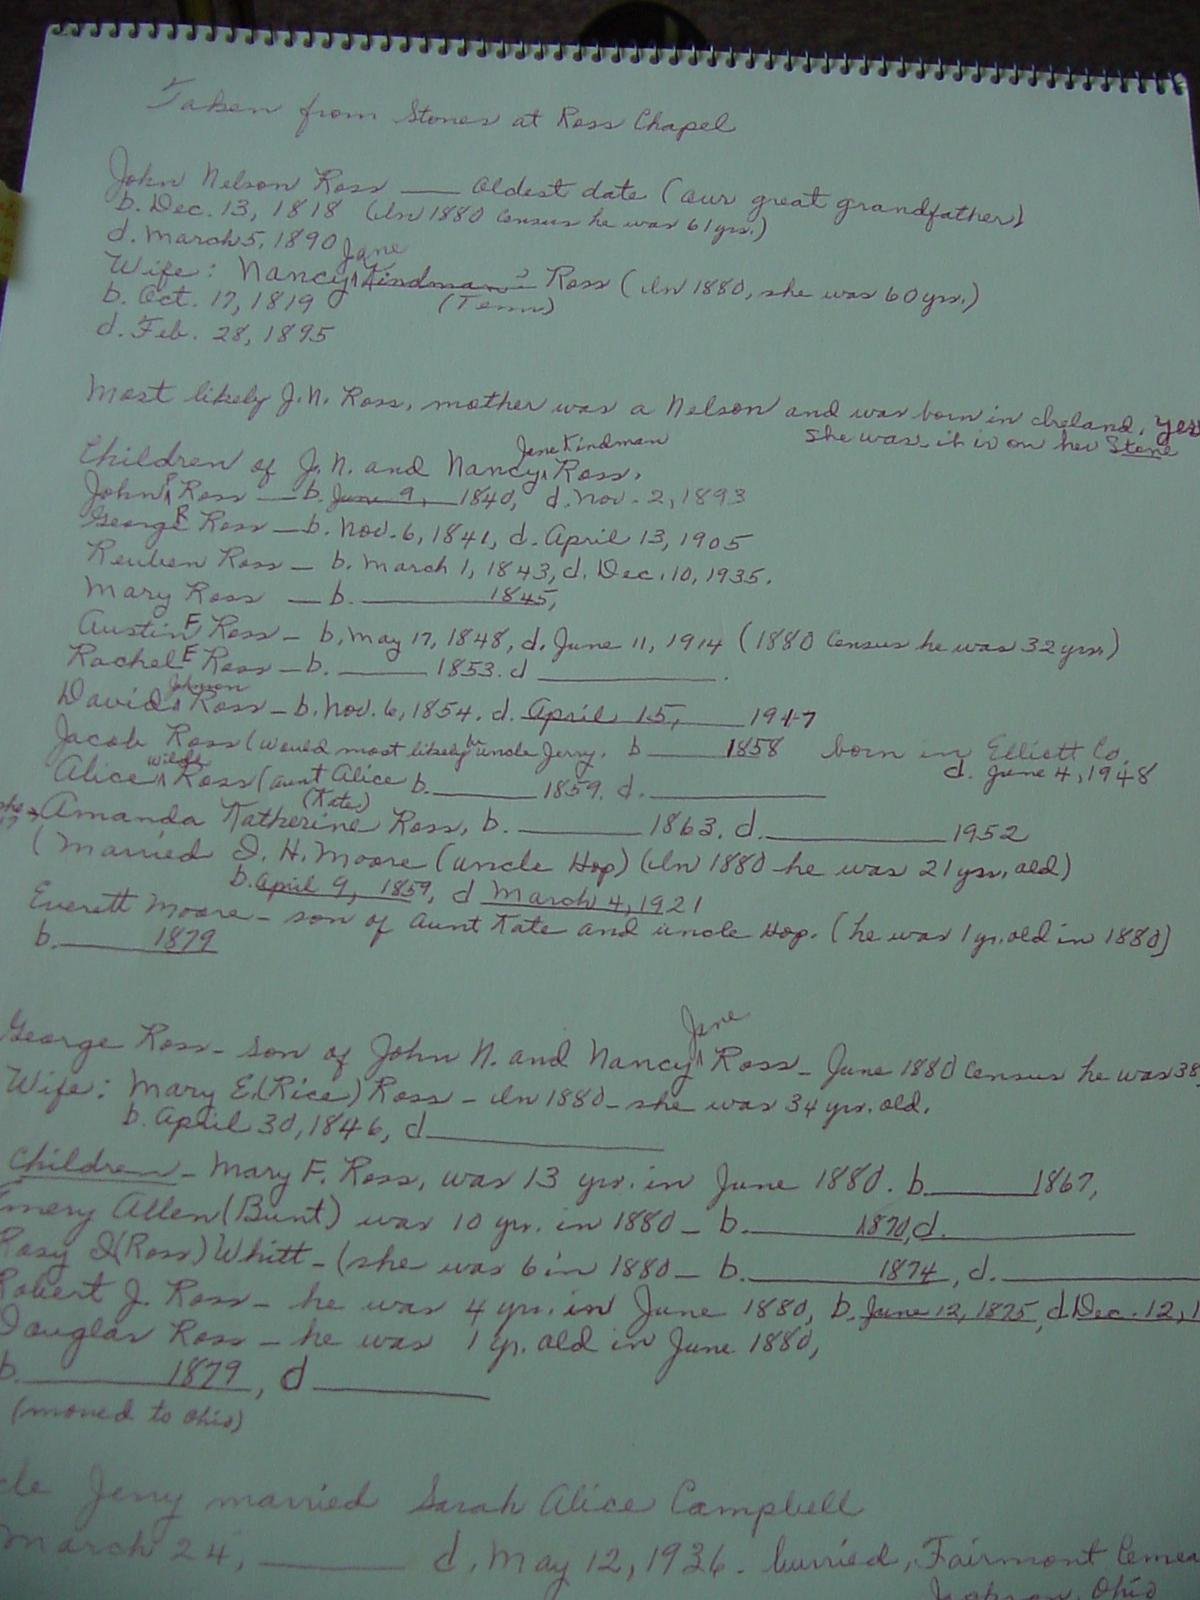 Taken from Stones at Ross Chapel
John Nelson Ross — oldest date (our great grandfather)
b. Dec. 13, 1818 (In 1880 Census he was 61 yrs.)
d. March 5, 1890
Wife: Nancy Jane Kindman Ross (In 1880, she was 60 yrs.)
b. Oct. 17, 1819 (Tenn)
d. Feb. 28, 1895
Most likely J.N. Ross, mother was a Nelson and was born in Ireland. yes
she was, it is on her Stone
Children of J.N. and Nancy Jane Kindman Ross.
John Ross — b. June 9, 1840, d. Nov. 2, 1893
George R Ross — b. Nov. 6, 1841, d. April 13, 1905
Reuben Ross — b. March 1, 1843, d. Dec. 10, 1935.
Mary Ross — b. ____ 1845,
Austin F Ross — b. May 17, 1848, d. June 11, 1914 (1880 Census he was 32 yrs.)
Rachel E Ross — b. ____ 1853. d ____.
David Johnson Ross — b. Nov. 6, 1854. d. April 15, ____ 1917
Jacob Ross (would most likely be uncle Jerry. b ____ 1858 born in Elliett Co.
d. June 4, 1948
Alice Ross (aunt Alice b. ____ 1859. d. ____
Amanda Katherine (Kate) Ross, b. ____ 1863. d. ____ 1952
(Married I. H. Moore (uncle Hop) (In 1880 he was 21 yrs. old)
b. April 9, 1859, d March 4, 1921
Everett Moore — son of Aunt Kate and uncle Hop. (he was 1 yr. old in 1880)
b. ____ 1879
George Ross — son of John N. and Nancy Jane Ross — June 1880 Census he was 38
Wife: Mary E. (Rice) Ross — In 1880 — she was 34 yrs. old.
b. April 30, 1846, d ____
Children — Mary F. Ross, was 13 yrs. in June 1880. b. ____ 1867,
Emery Allen (Bunt) was 10 yr. in 1880 — b. ____ 1870, d. ____
Rosy I (Ross) Whitt — (she was 6 in 1880 — b. ____ 1874, d. ____
Robert J. Ross — he was 4 yrs. in June 1880, b. June 12, 1875, d Dec. 12, 1
Douglas Ross — he was 1 yr. old in June 1880,
b. ____ 1879, d ____
(moved to Ohio)
Jerry married Sarah Alice Campbell
March 24, ____ d. May 12, 1936. burried, Fairmont
Ohio